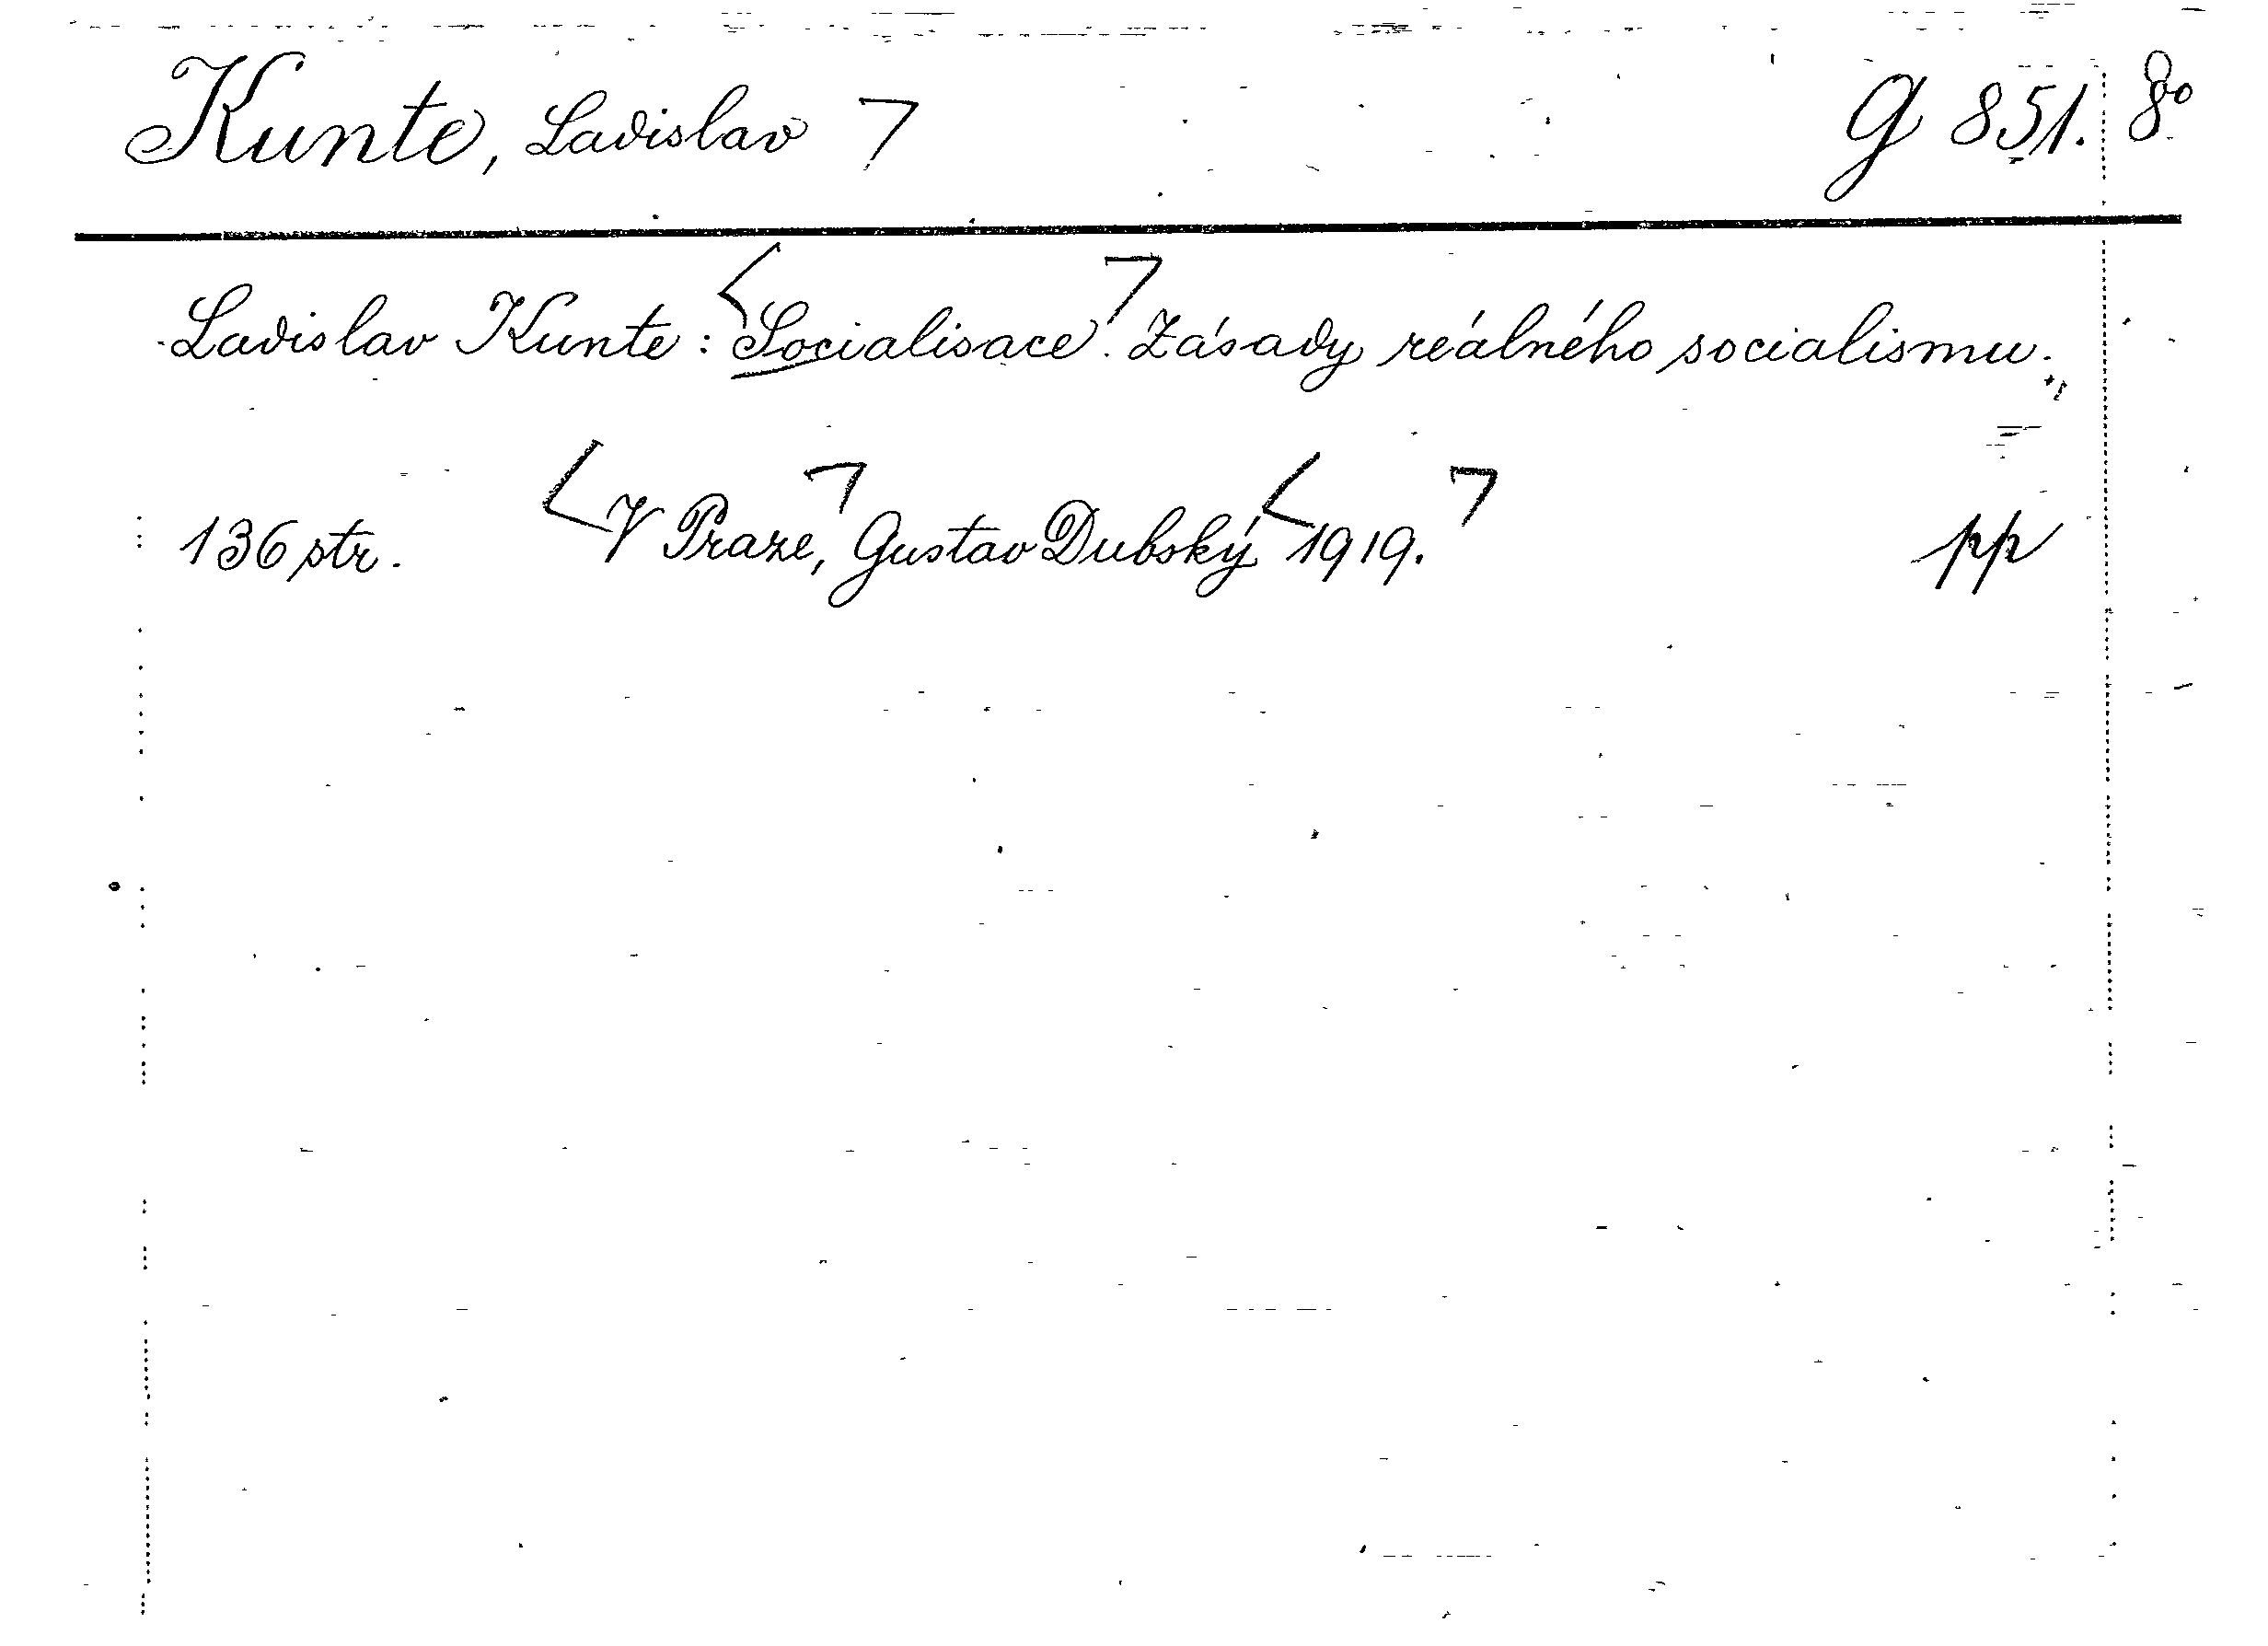 Kunte, Ladislav G 851. 8°
Ladislav Kunte: Socialisace. Zásady reálného socialismu.
136 str. V Praze, Gustav Dubský 1919. pp